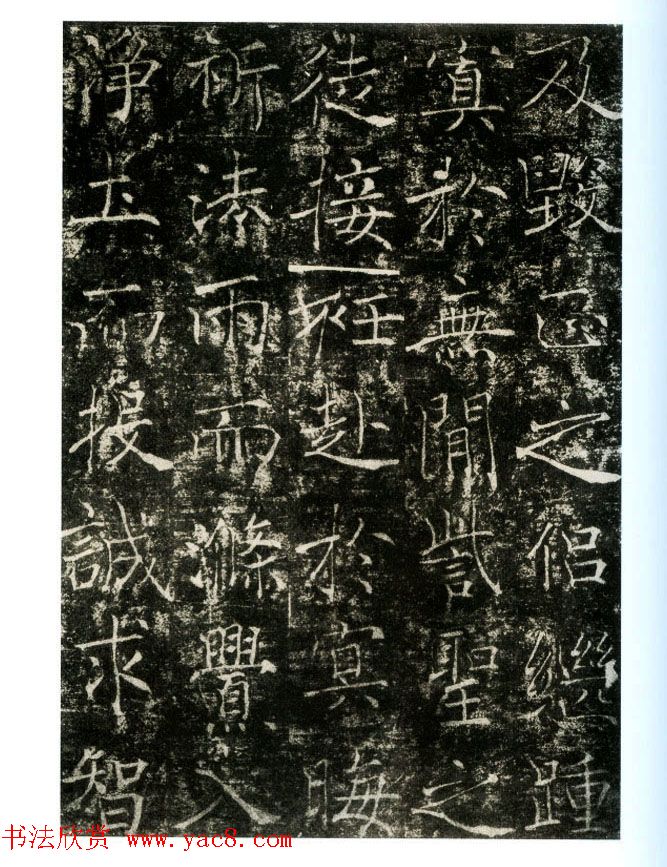 及毀正之侶繼踵
寘於無閒訾聖之
徒接衽赴於冥晦
祈法雨而滌舋入
淨土而投誠求智
书法欣赏 www.yac8.com